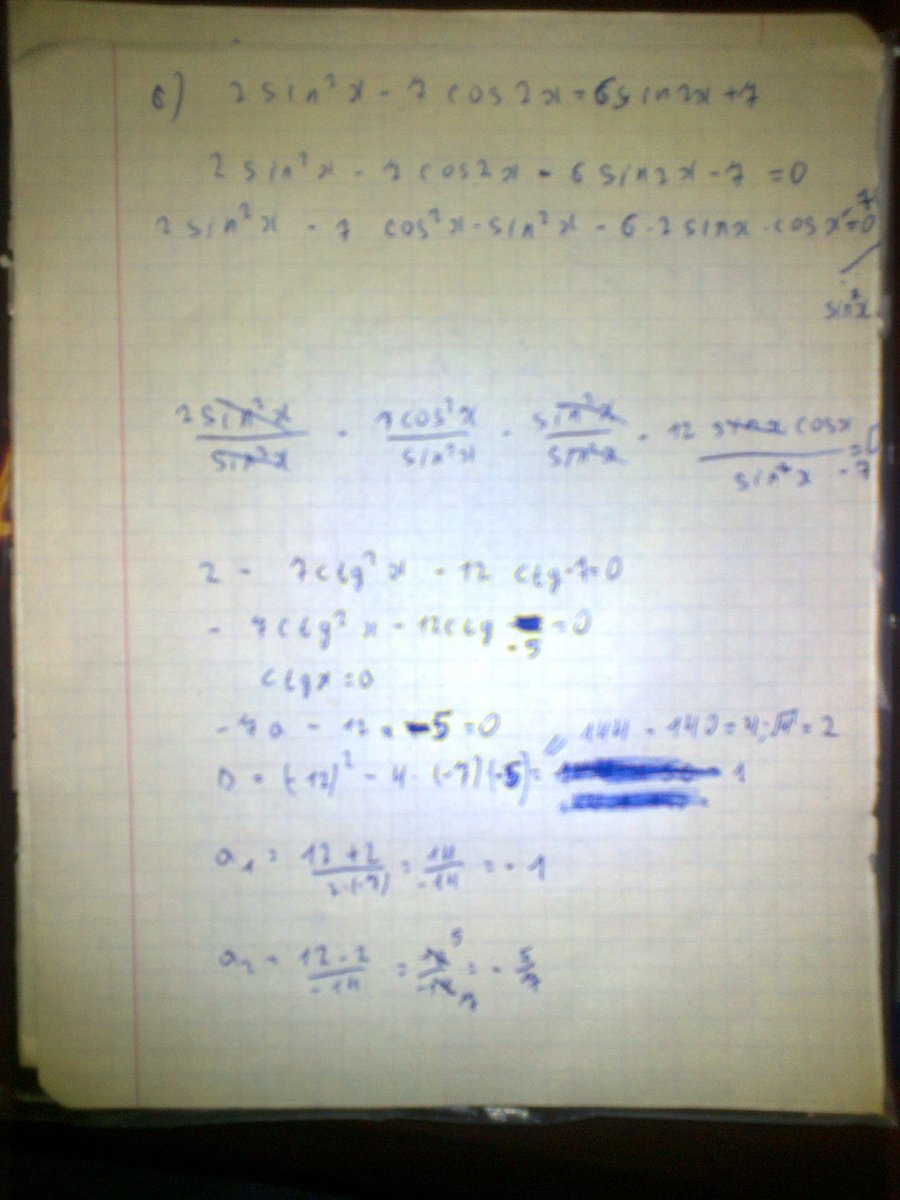 в) 2 sin²x - 7 cos2x = 6 sin2x + 7
2 sin²x - 7 cos2x - 6 sin2x - 7 = 0
2 sin²x - 7 cos²x - sin²x - 6 · 2 sinx · cosx - 7 = 0
sin²x
2 sin²x / sin²x - 7 cos²x / sin²x - sin²x / sin²x - 12 sinx cosx / sin²x - 7 = 0
2 - 7ctg²x - 12 ctg - 7 = 0
- 7ctg²x - 12ctg - 5 = 0
ctgx = 0
-7a - 12a - 5 = 0
D = (-12)² - 4 · (-7)(-5) = 144 - 140 = 4; √4 = 2
a₁ = 12 + 2 / 2·(-7) = 14 / -14 = - 1
a₂ = 12 - 2 / -14 = 10 5 / -14 7 = - 5/7